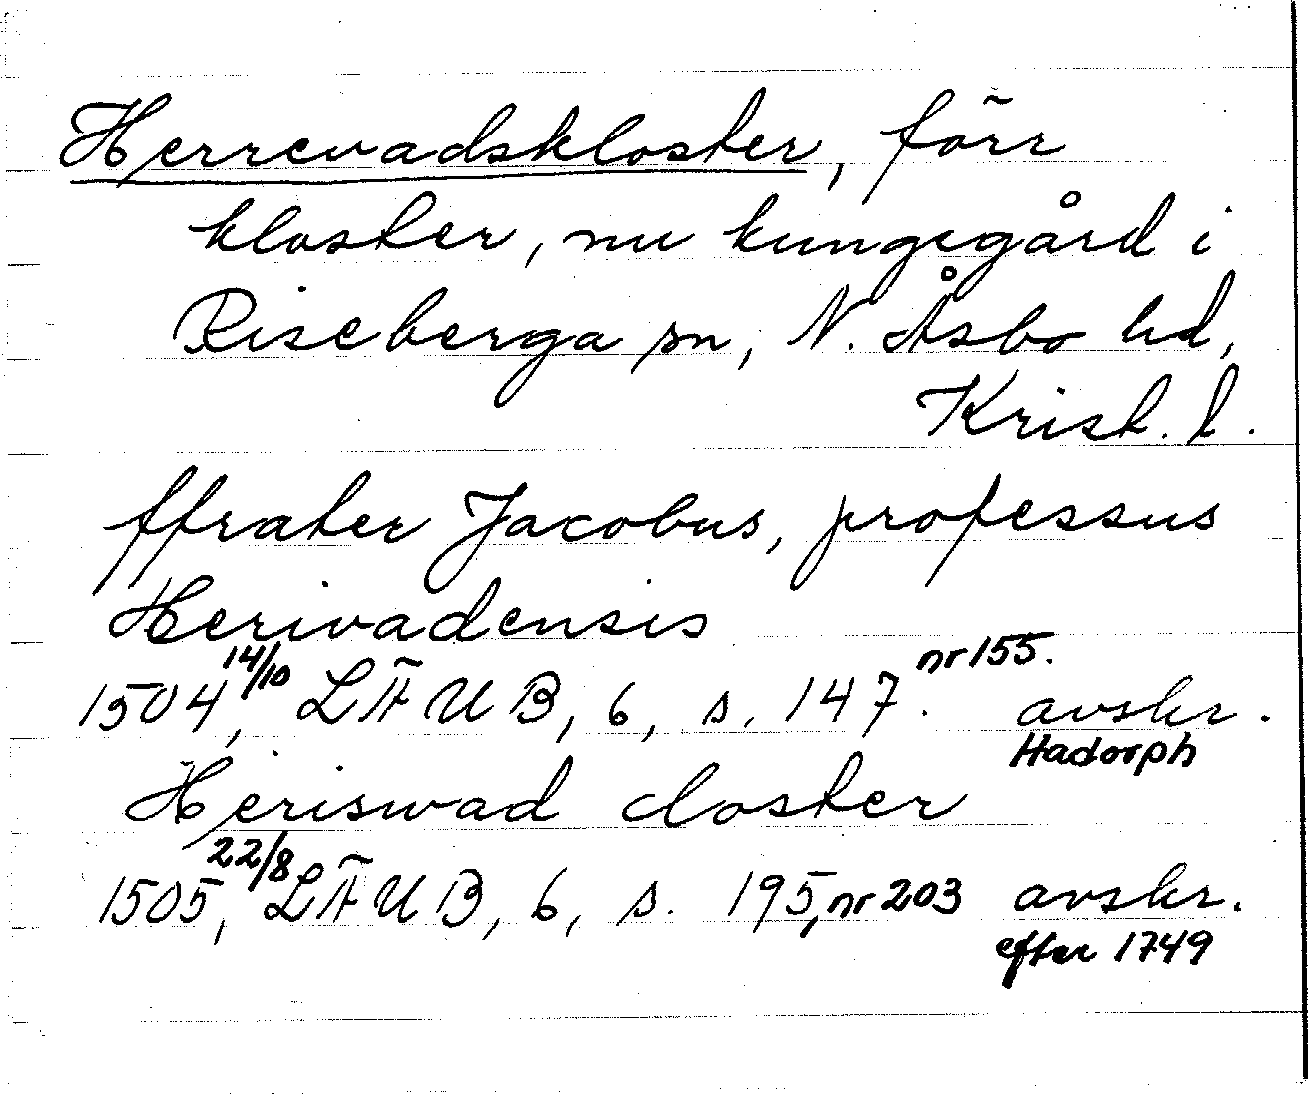 Herrevadskloster, förr
kloster, nu kungsgård i
Riseberga sn, N. Åsbo hd,
Krist. l.
ffrater Jacobus, professus
Herivadensis
1504 14/10, LÄUB, 6, s. 147. nr 155. avskr.
Hadorph
Heriswad closter
1505 22/8, LÄUB, 6, s. 195, nr 203 avskr.
efter 1749